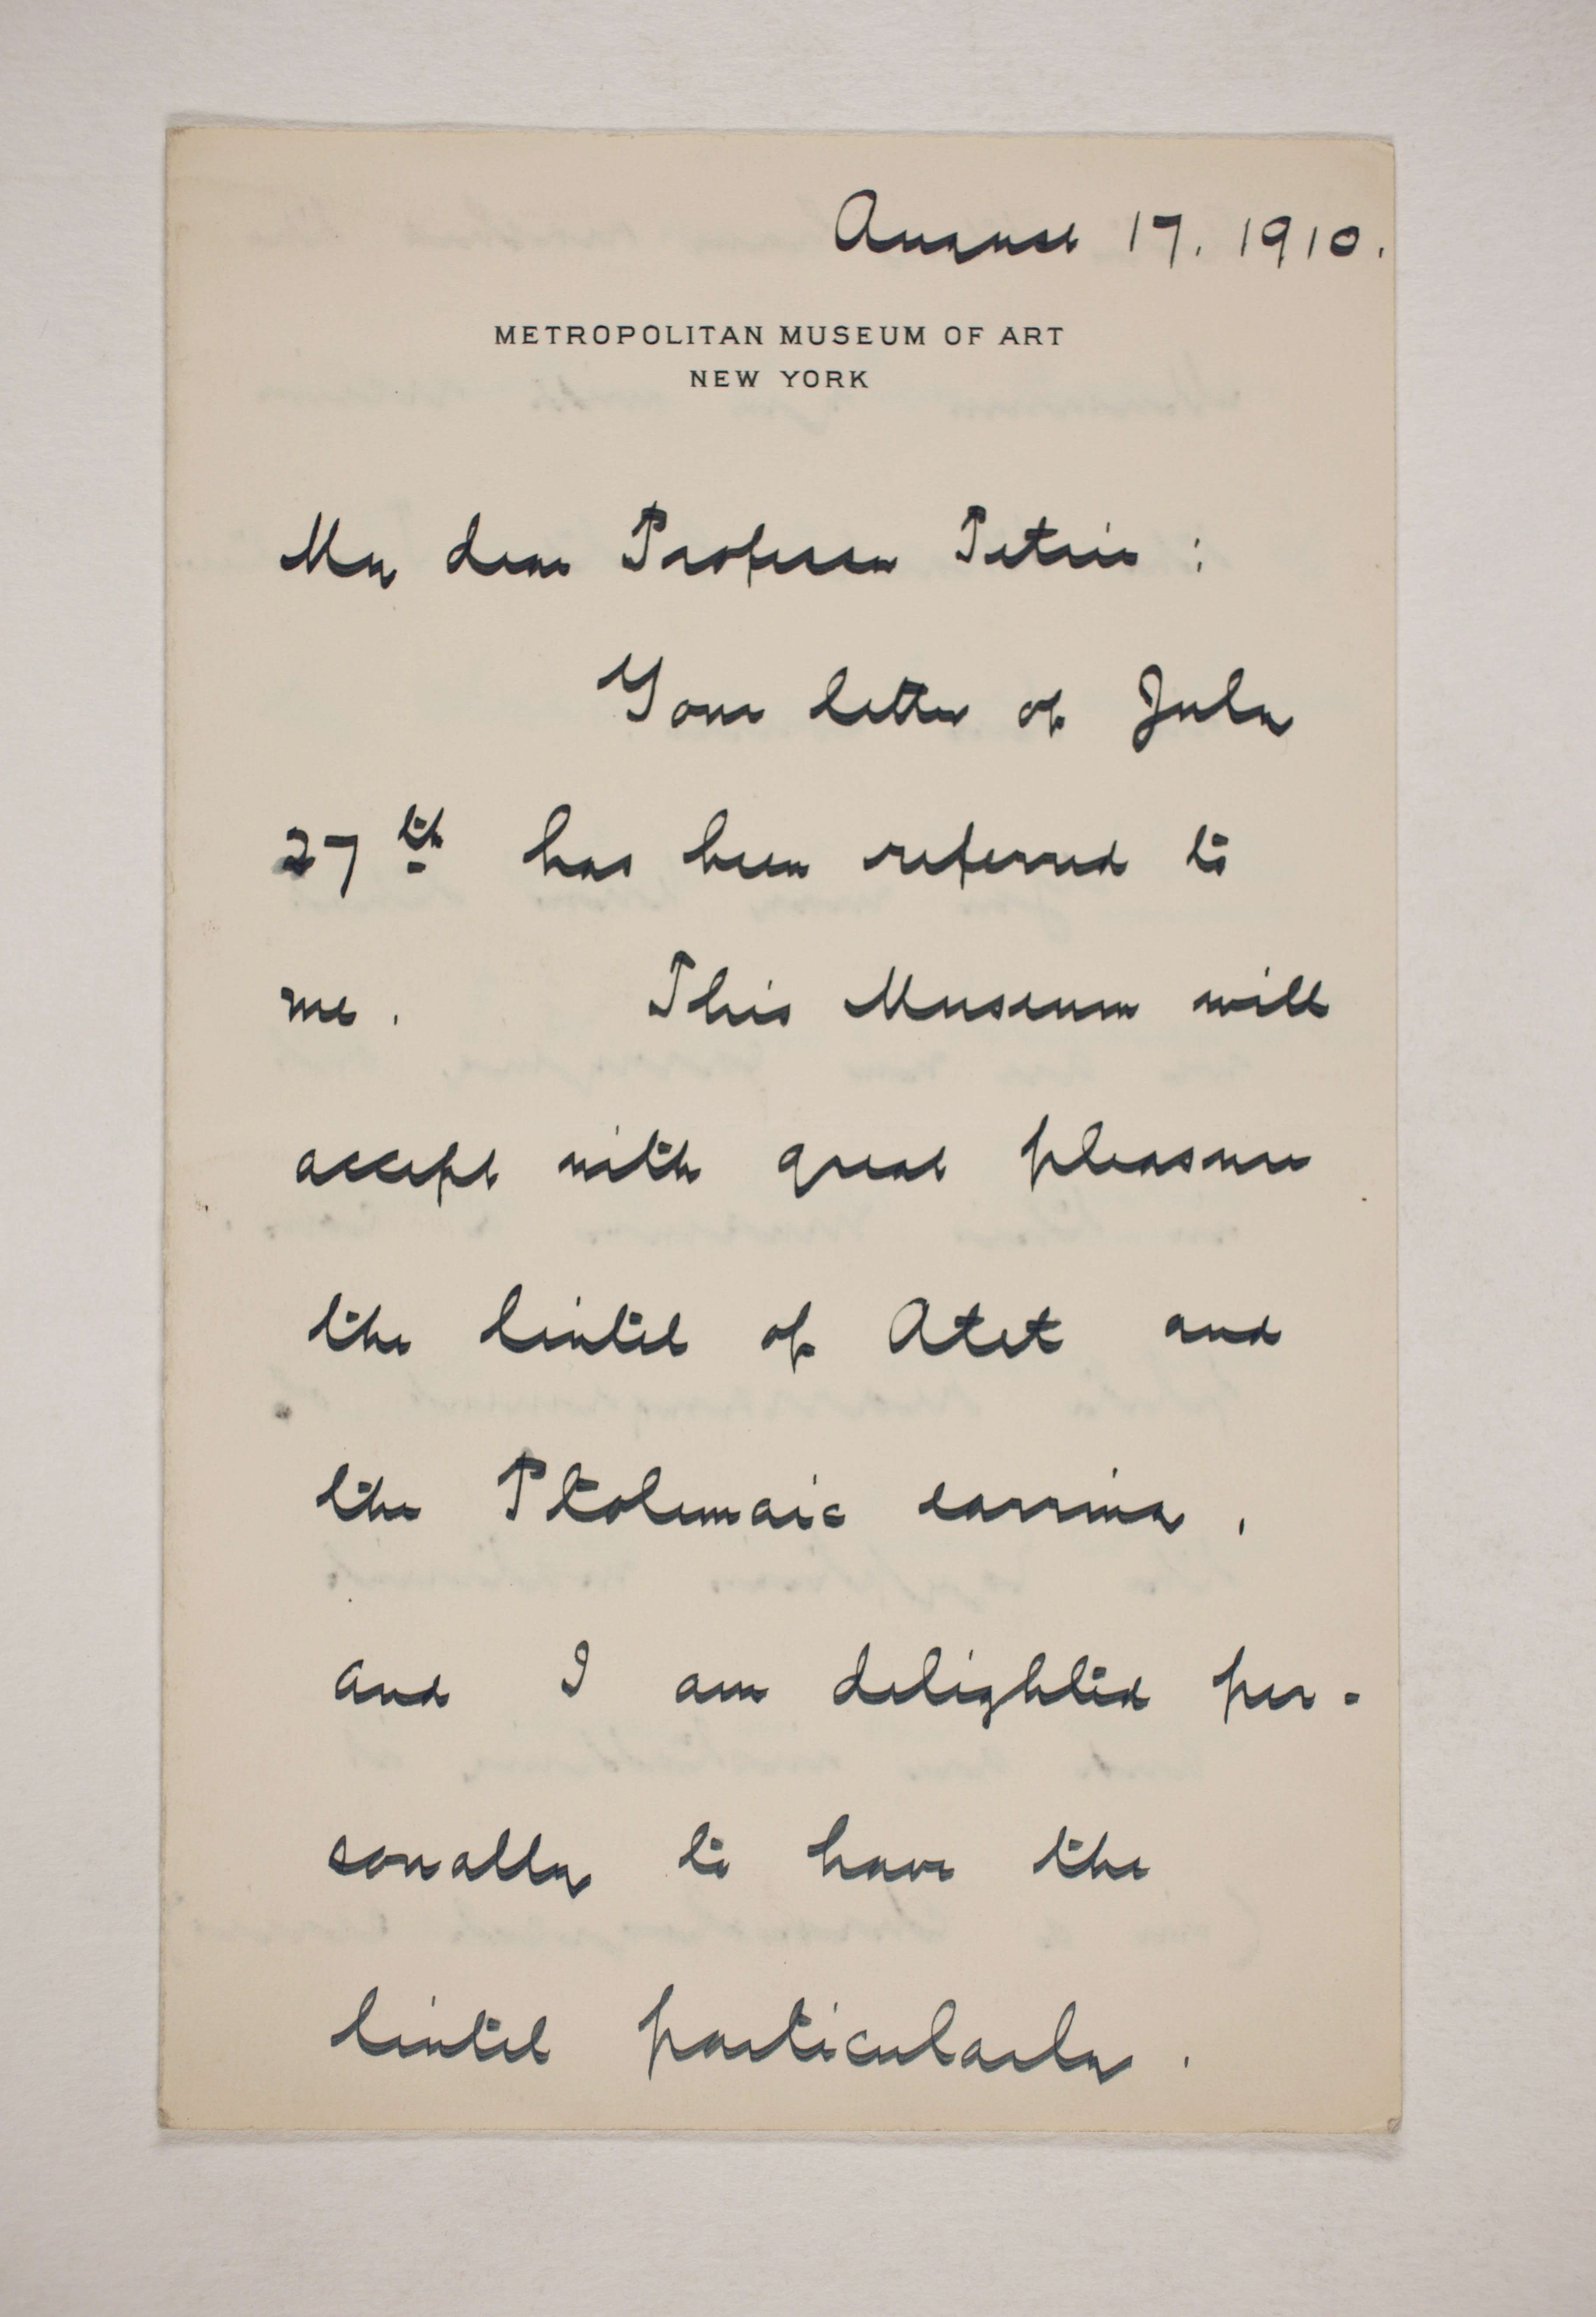 August 17. 1910.
METROPOLITAN MUSEUM OF ART
NEW YORK
My dear Professor Petrie :
Your letter of July
27th has been referred to
me. This Museum will
accept with great pleasure
the lintel of Atet and
the Ptolemaic earring,
and I am delighted per-
sonally to have the
lintel particularly.